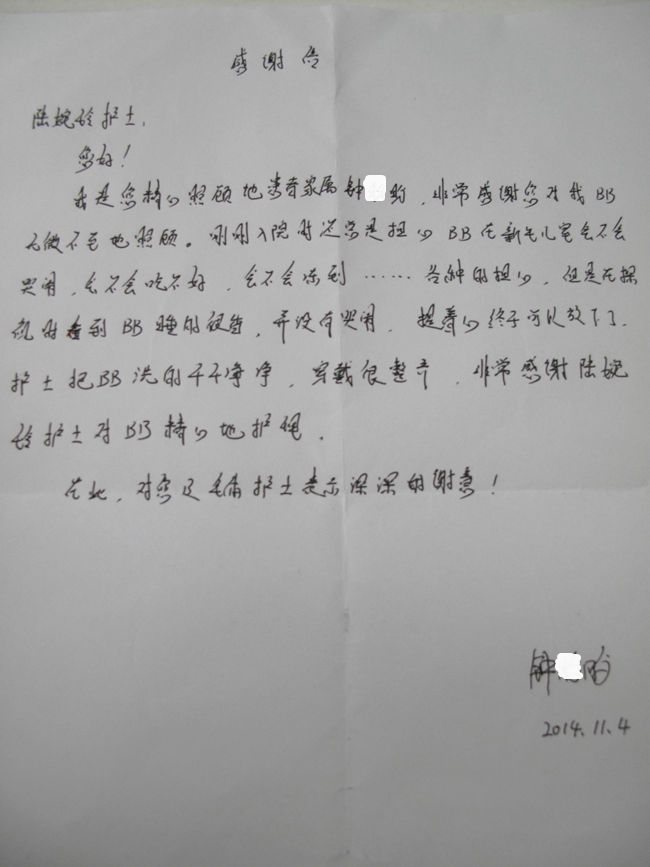 感谢信
陆婉玲护士:
您好!
我是您精心照顾地患者家属钟 昀,非常感谢您对我BB
无微不至地照顾。刚刚入院时还总是担心BB在新生儿室会不会
哭闹,会不会吃不好,会不会冻到……各种的担心,但是在探
视时看到BB睡的很香,并没有哭闹,提着心终于可以放下了.
护士把BB洗的干干净净,穿戴很整齐,非常感谢陆婉
玲护士对BB精心地护理.
在此,对您及毛 护士表示深深的谢意!
钟
2014.11.4